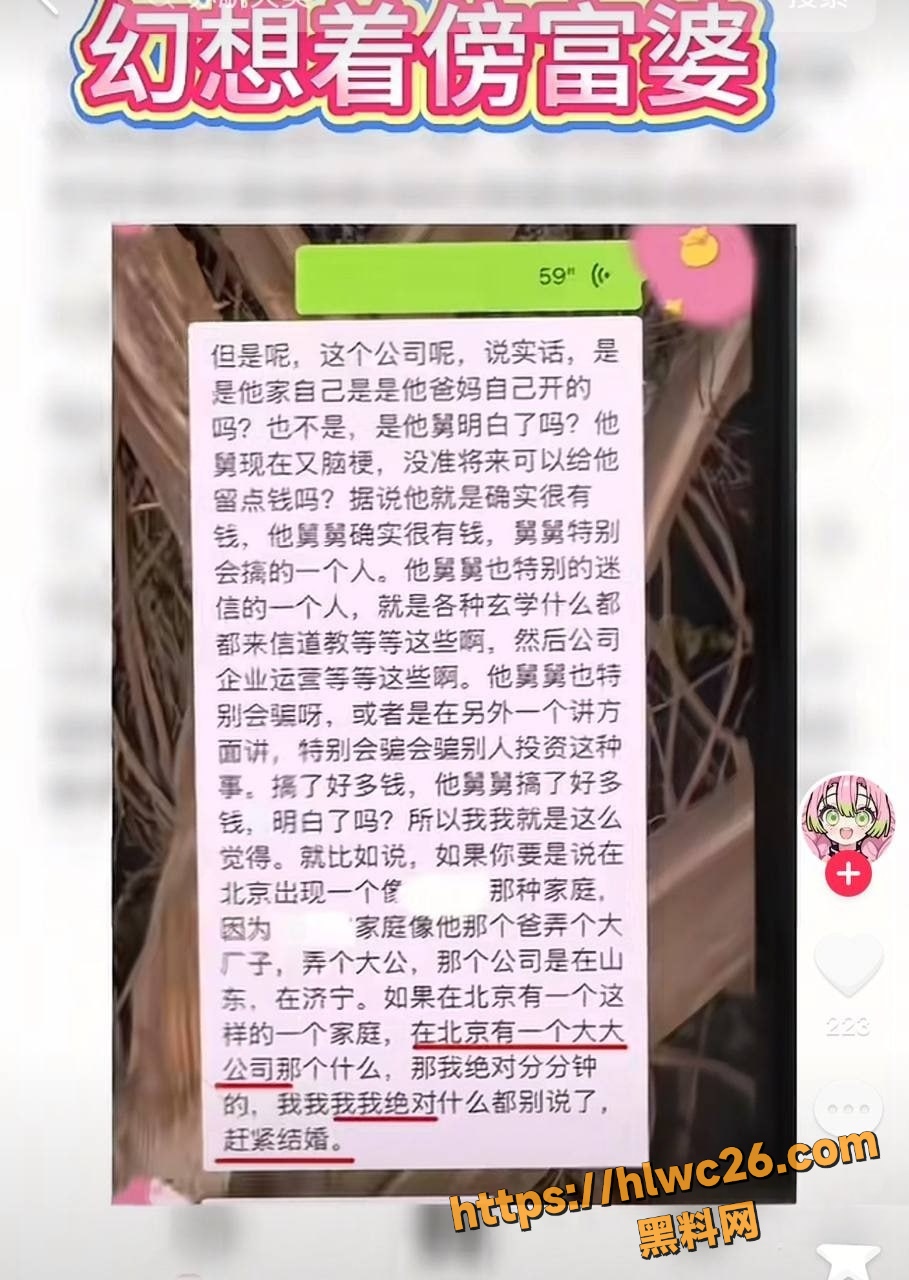 幻想着傍富婆
59"
但是呢，这个公司呢，说实话，是
是他家自己是是他爸妈自己开的
吗？也不是，是他舅明白了吗？他
舅现在又脑梗，没准将来可以给他
留点钱吗？据说他就是确实很有
钱，他舅舅确实很有钱，舅舅特别
会搞的一个人。他舅舅也特别的迷
信的一个人，就是各种玄学什么都
都来信道教等等这些啊，然后公司
企业运营等等这些啊。他舅舅也特
别会骗呀，或者是在另外一个讲方
面讲，特别会骗会骗别人投资这种
事。搞了好多钱，他舅舅搞了好多
钱，明白了吗？所以我我就是这么
觉得。就比如说，如果你要是说在
北京出现一个像 那种家庭，
因为 家庭像他那个爸弄个大
厂子，弄个大公，那个公司是在山
东，在济宁。如果在北京有一个这
样的一个家庭，在北京有一个大大
公司那个什么，那我绝对分分钟
的，我我我我绝对什么都别说了，
赶紧结婚。
223
https://hlwc26.com
黑料网